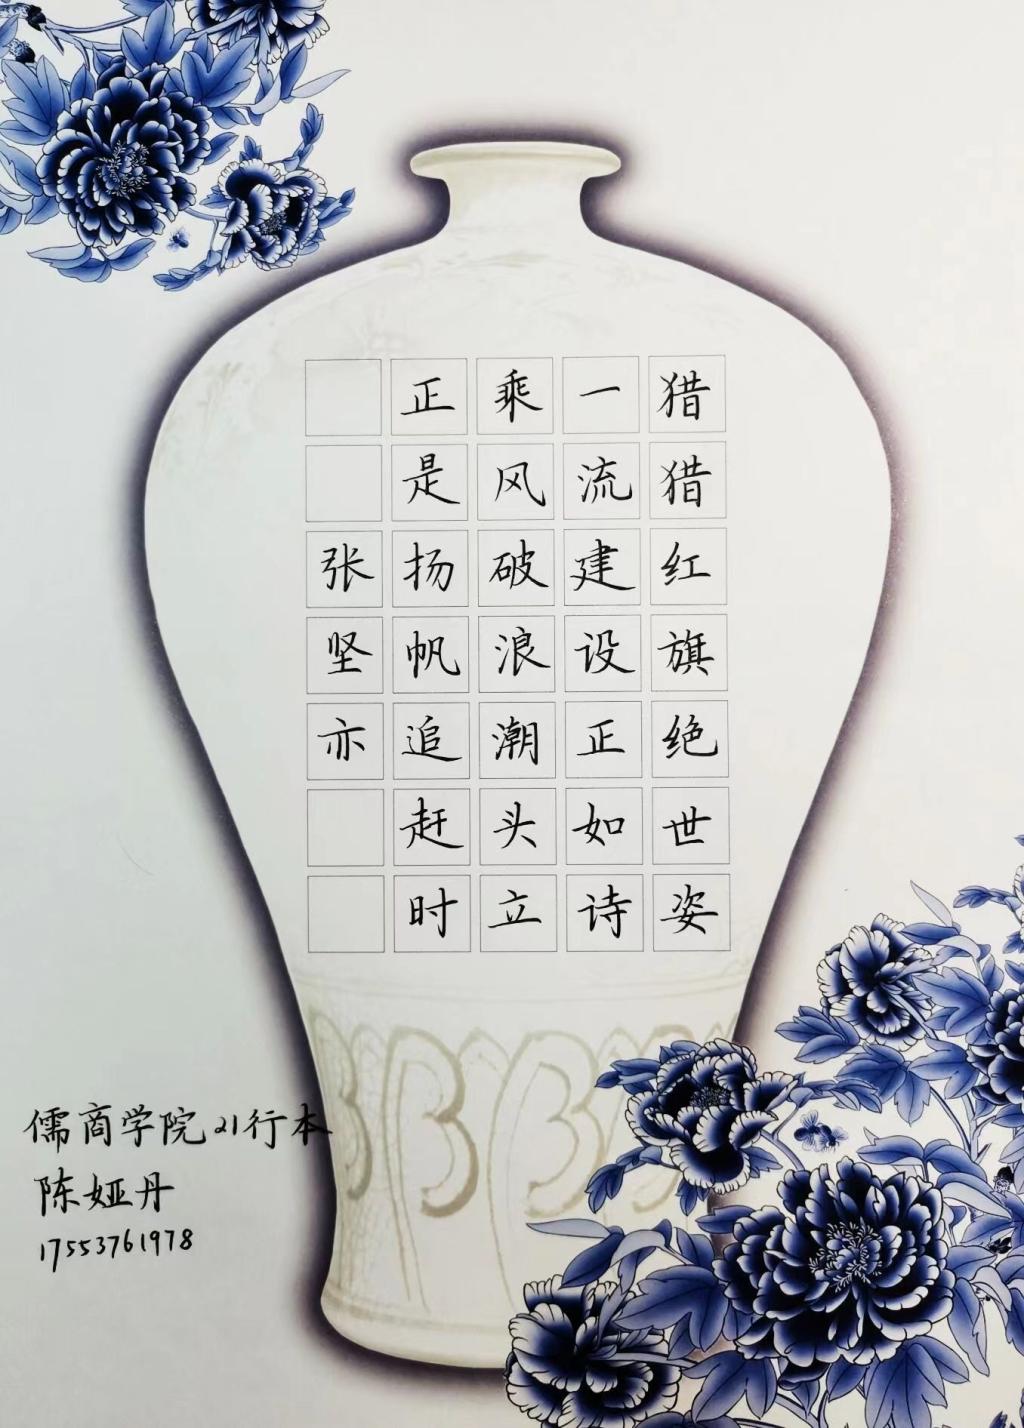 猎猎红旗绝世姿
一流建设正如诗
乘风破浪潮头立
正是扬帆追赶时
张坚亦
儒商学院21行本
陈娅丹
17553761978